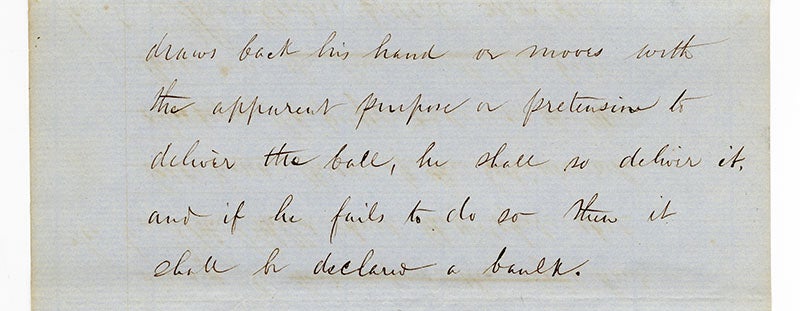 draws back his hand or moves with
the apparent purpose or pretension to
deliver the ball, he shall so deliver it,
and if he fails to do so then it
shall be declared a baulk.